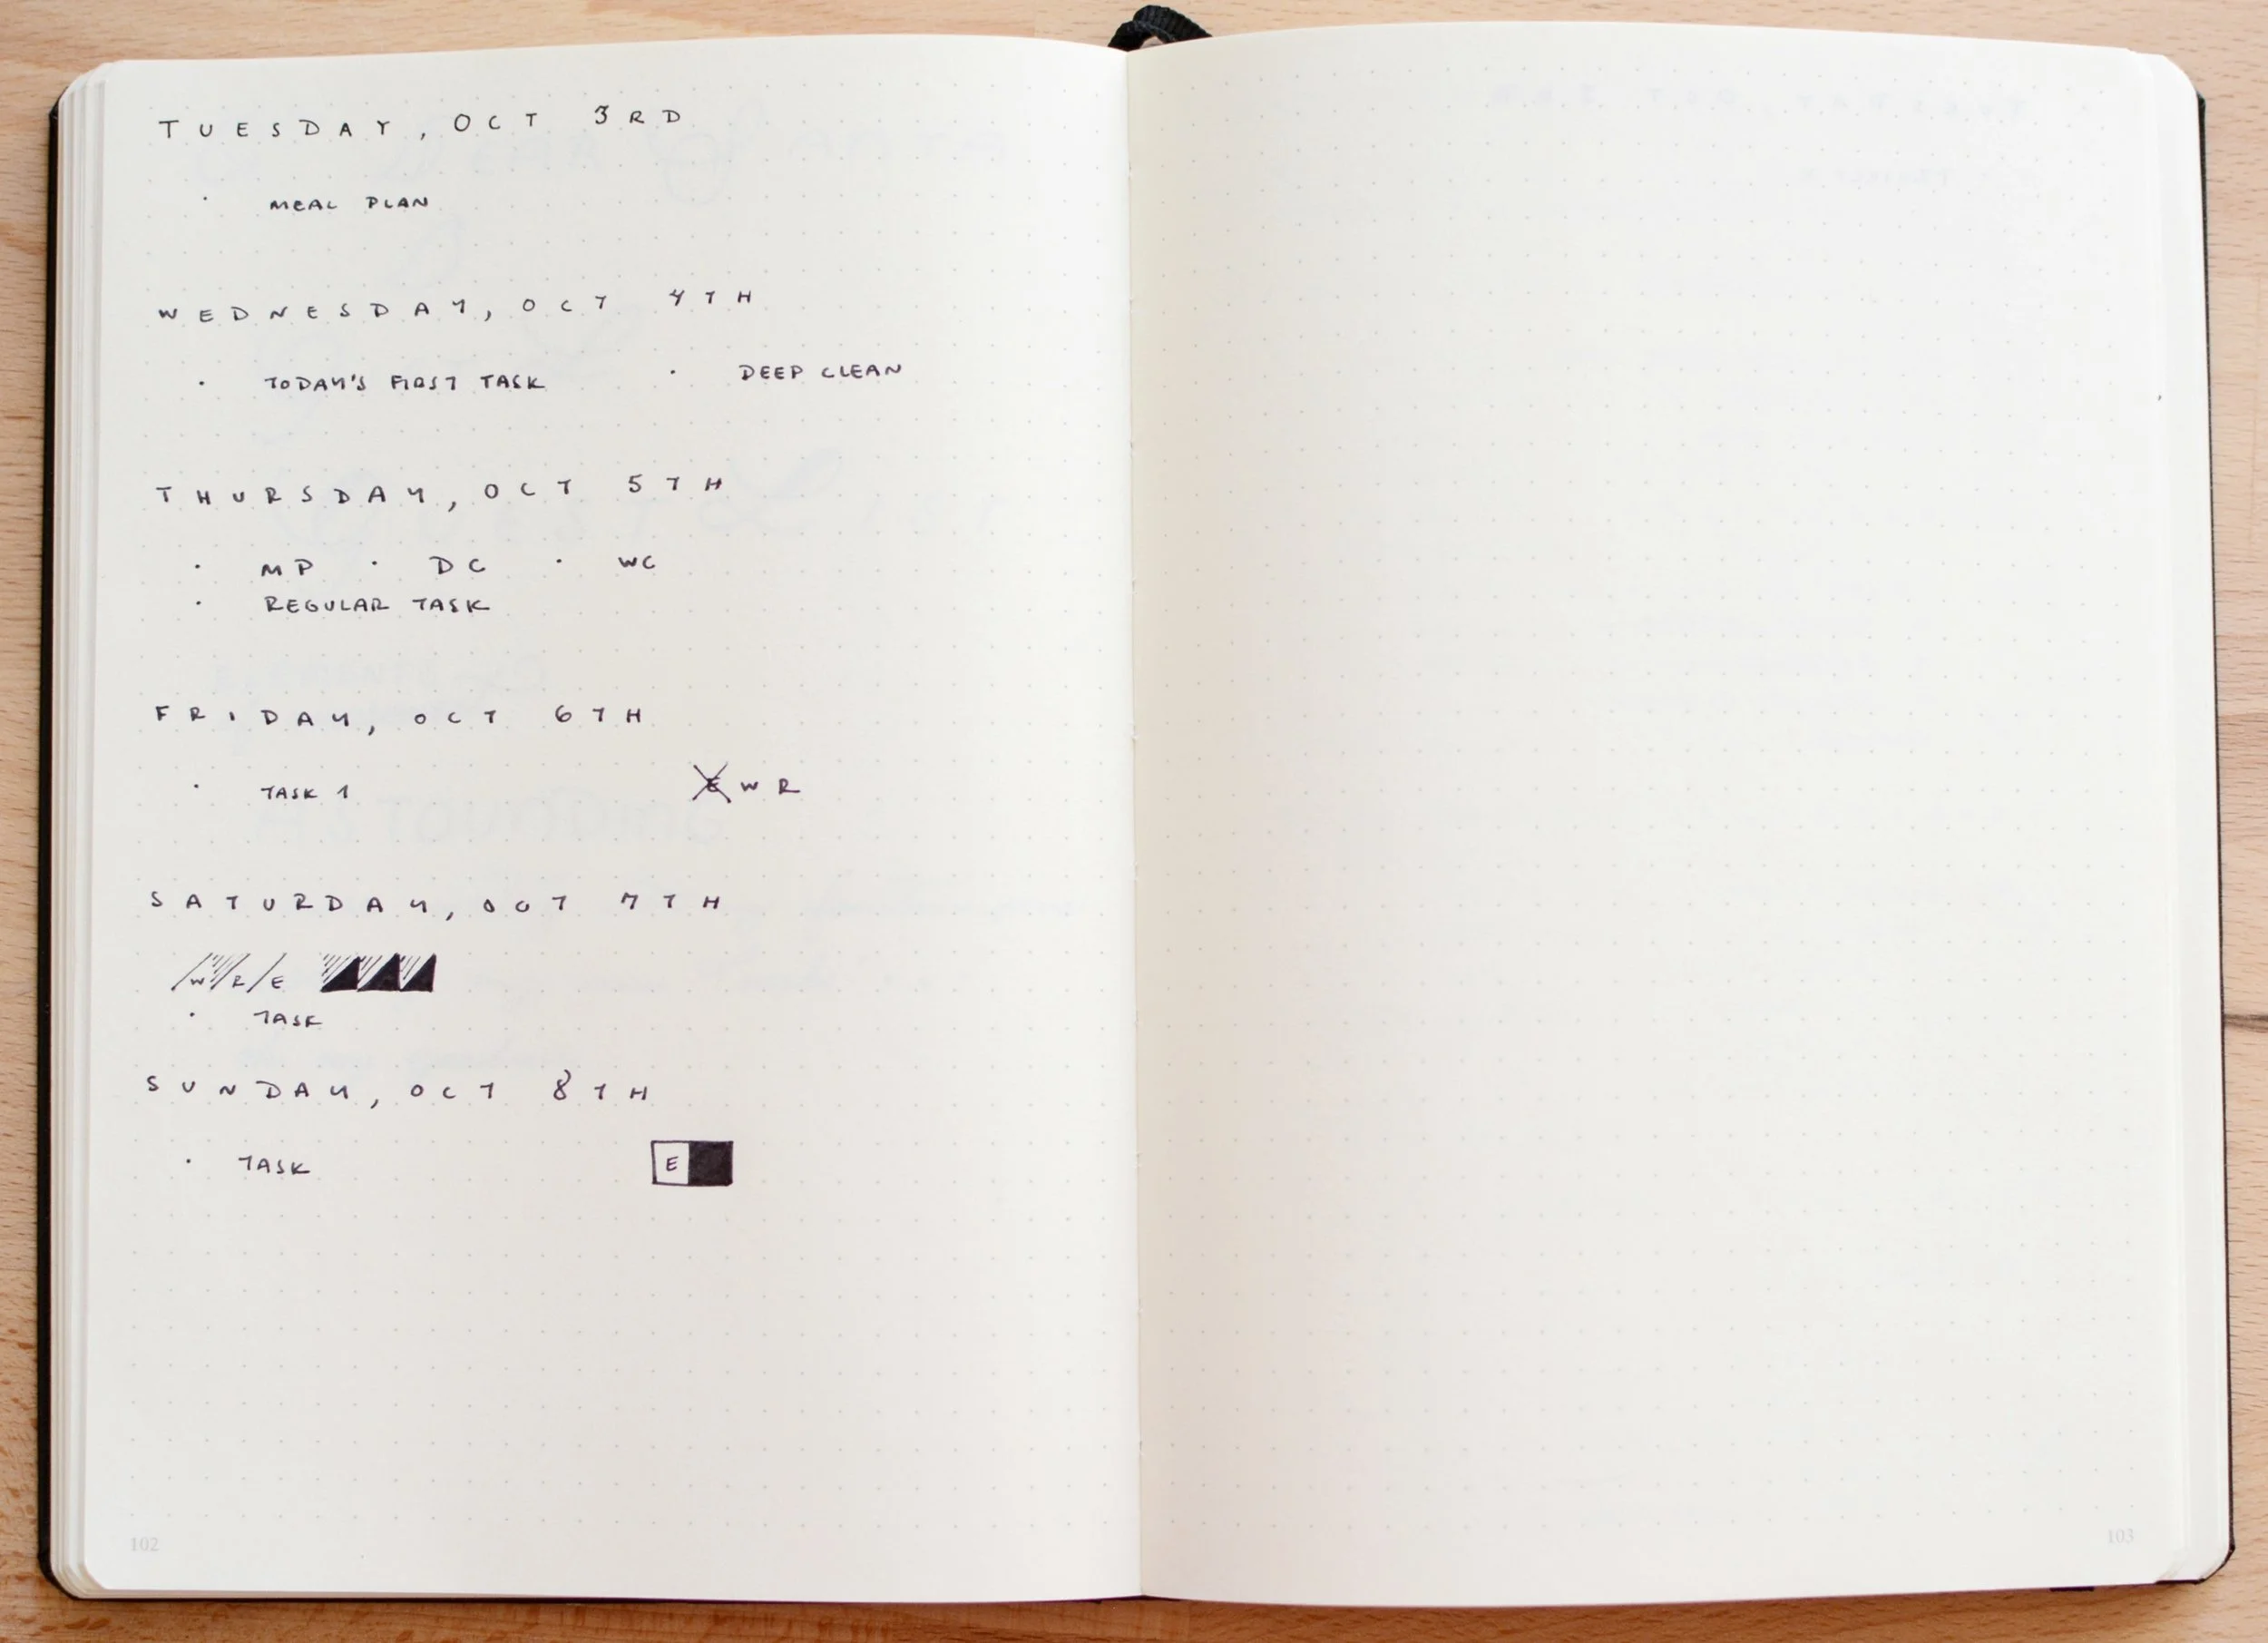 TUESDAY, OCT 3RD
· MEAL PLAN
WEDNESDAY, OCT 4TH
· TODAY'S FIRST TASK · DEEP CLEAN
THURSDAY, OCT 5TH
· MP · DC · WC
· REGULAR TASK
FRIDAY, OCT 6TH
· TASK 1 E W R
SATURDAY, OCT 7TH
/W/R/E
· TASK
SUNDAY, OCT 8TH
· TASK E
102
103